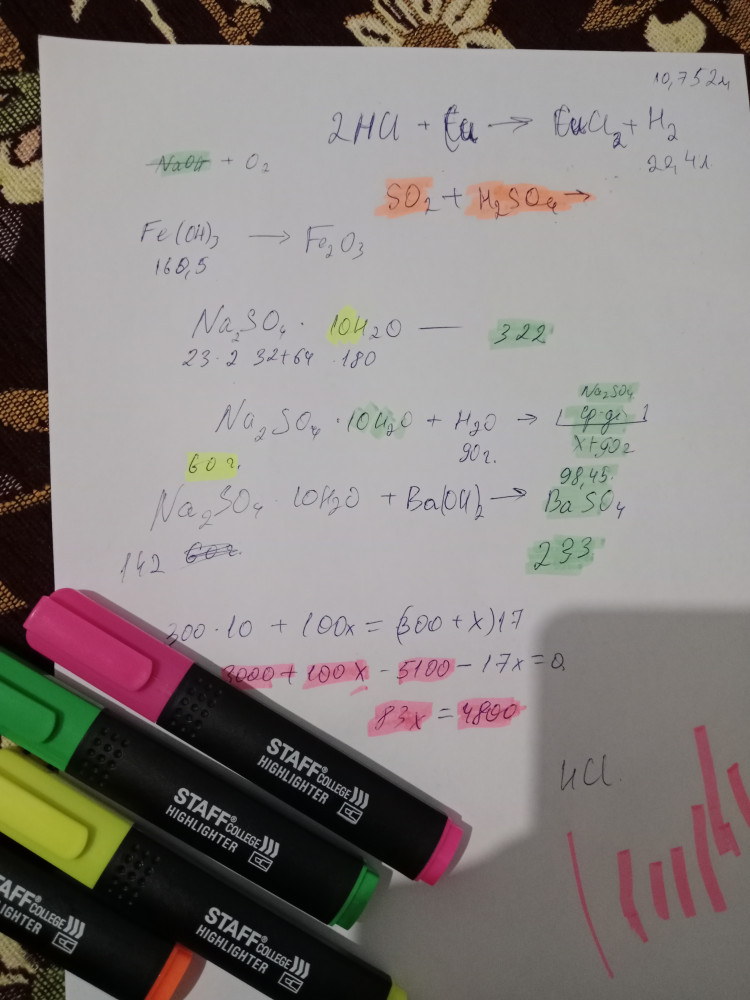 10,752л
2HCl + Cu → CuCl₂ + H₂
22,4л
NaOH + O₂
SO₂ + H₂SO₄ →
Fe(OH)₃ → Fe₂O₃
160,5
Na₂SO₄ · 10H₂O — 322
23·2 32+64 180
Na₂SO₄
Na₂SO₄ · 10H₂O + H₂O →
90г. x+90г
60г. 98,45
Na₂SO₄ · 10H₂O + Ba(OH)₂ → BaSO₄
142 60г. 233
300·10 + 100x = (300 + x)17
3000 + 100x - 5100 - 17x = 0
83x = 4800
HCl.
STAFF COLLEGE
HIGHLIGHTER
STAFF COLLEGE
HIGHLIGHTER
STAFF COLLEGE
HIGHLIGHTER
STAFF COLLEGE
HIGHLIGHTER